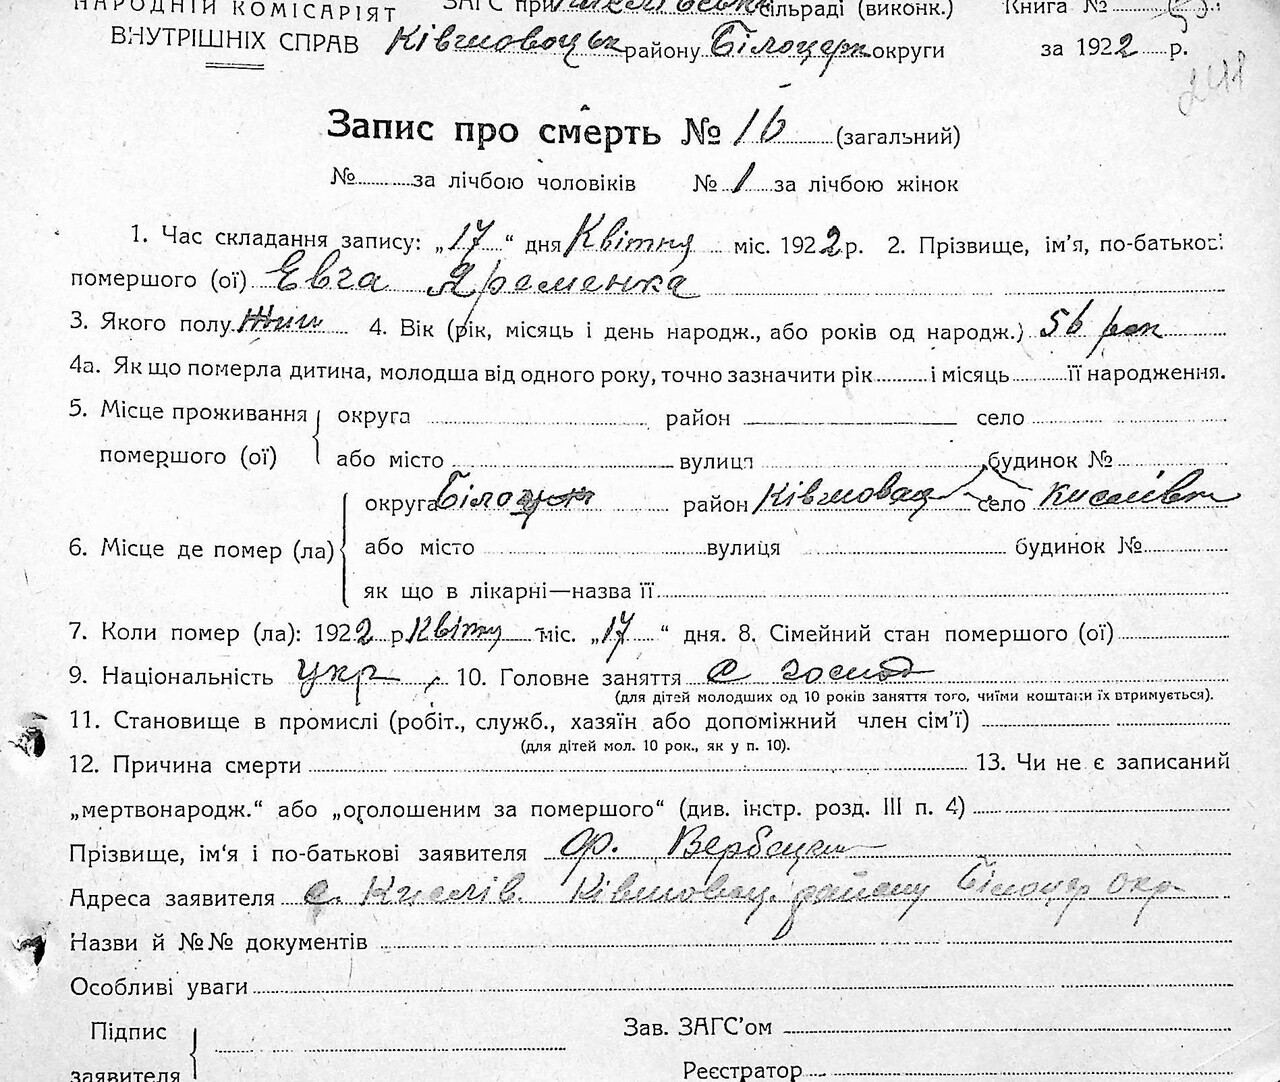 НАРОДНІЙ КОМІСАРІЯТ ЗАГС при сільраді (виконк.) Книга №
ВНУТРІШНІХ СПРАВ Ківшовацьк району Білоцерк округи за 1922 р.
241
Запис про смерть № 16 (загальний)
№ за лічбою чоловіків № 1 за лічбою жінок
1. Час складання запису: „17“ дня Квітня міс. 1922 р. 2. Прізвище, ім'я, по-батькові
помершого (ої) Евга Яременка
3. Якого полу Жин 4. Вік (рік, місяць і день народж., або років од народж.) 56 рок
4а. Як що померла дитина, молодша від одного року, точно зазначити рік і місяць її народження.
5. Місце проживання помершого (ої) округа район село
або місто вулиця будинок №
6. Місце де помер (ла) округа Білоцерк район Ківшовац село Кислівк
або місто вулиця будинок №
як що в лікарні—назва її
7. Коли помер (ла): 1922 р. Квітн міс. „17“ дня. 8. Сімейний стан помершого (ої)
9. Національність укр, 10. Головне заняття С господ
(для дітей молодших од 10 років заняття того, чиїми коштами їх втримується).
11. Становище в промислі (робіт., служб., хазяїн або допоміжний член сім'ї)
(для дітей мол. 10 рок., як у п. 10).
12. Причина смерти 13. Чи не є записаний
„мертвонародж.“ або „оголошеним за помершого“ (див. інстр. розд. III п. 4)
Прізвище, ім'я і по-батькові заявителя Ф. Вербицьк
Адреса заявителя с. Кислів. Ківшовац. району Білоцер окр
Назви й №№ документів
Особливі уваги
Підпис заявителя Зав. ЗАГС'ом
Реєстратор